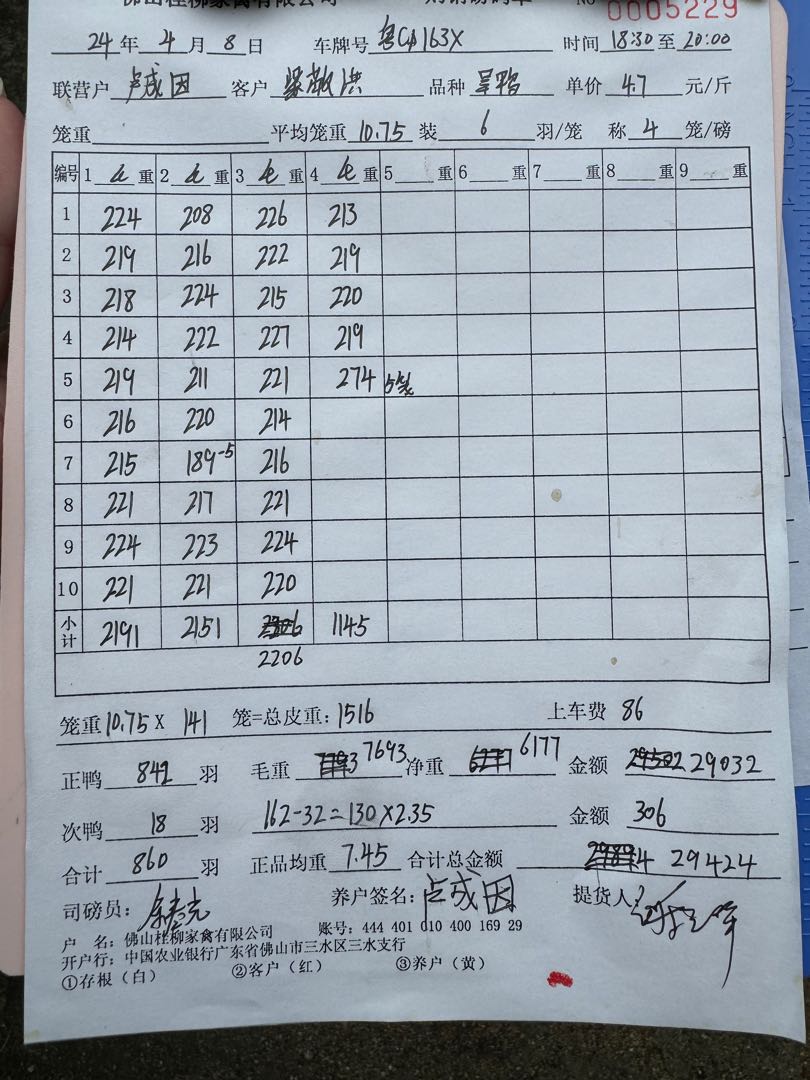 佛山桂柳家禽有限公司 NO 0005229
24年4月8日 车牌号 粤CA163X 时间 18:30 至 20:00
联营户 卢成因 客户 梁敬洪 品种 单价 4.7 元/斤
笼重 平均笼重 10.75 装 6 羽/笼 称 4 笼/磅
编号 1 毛 重 2 毛 重 3 毛 重 4 毛 重 5 重 6 重 7 重 8 重 9 重
1 224 208 226 213
2 219 216 222 219
3 218 224 215 220
4 214 222 227 219
5 219 211 221 274 5笼
6 216 220 214
7 215 189-5 216
8 221 217 221
9 224 223 224
10 221 221 220
小计 2191 2151 1145
2206
笼重 10.75 X 141 笼=总皮重: 1516 上车费 86
正鸭 842 羽 毛重 7693 净重 6177 金额 29032
次鸭 18 羽 162-32=130×2.35 金额 306
合计 860 羽 正品均重 7.45 合计总金额 29424
司磅员: 养户签名: 卢成因 提货人:
户 名: 佛山桂柳家禽有限公司 账号: 444 401 010 400 169 29
开户行: 中国农业银行广东省佛山市三水区三水支行
①存根（白） ②客户（红） ③养户（黄）